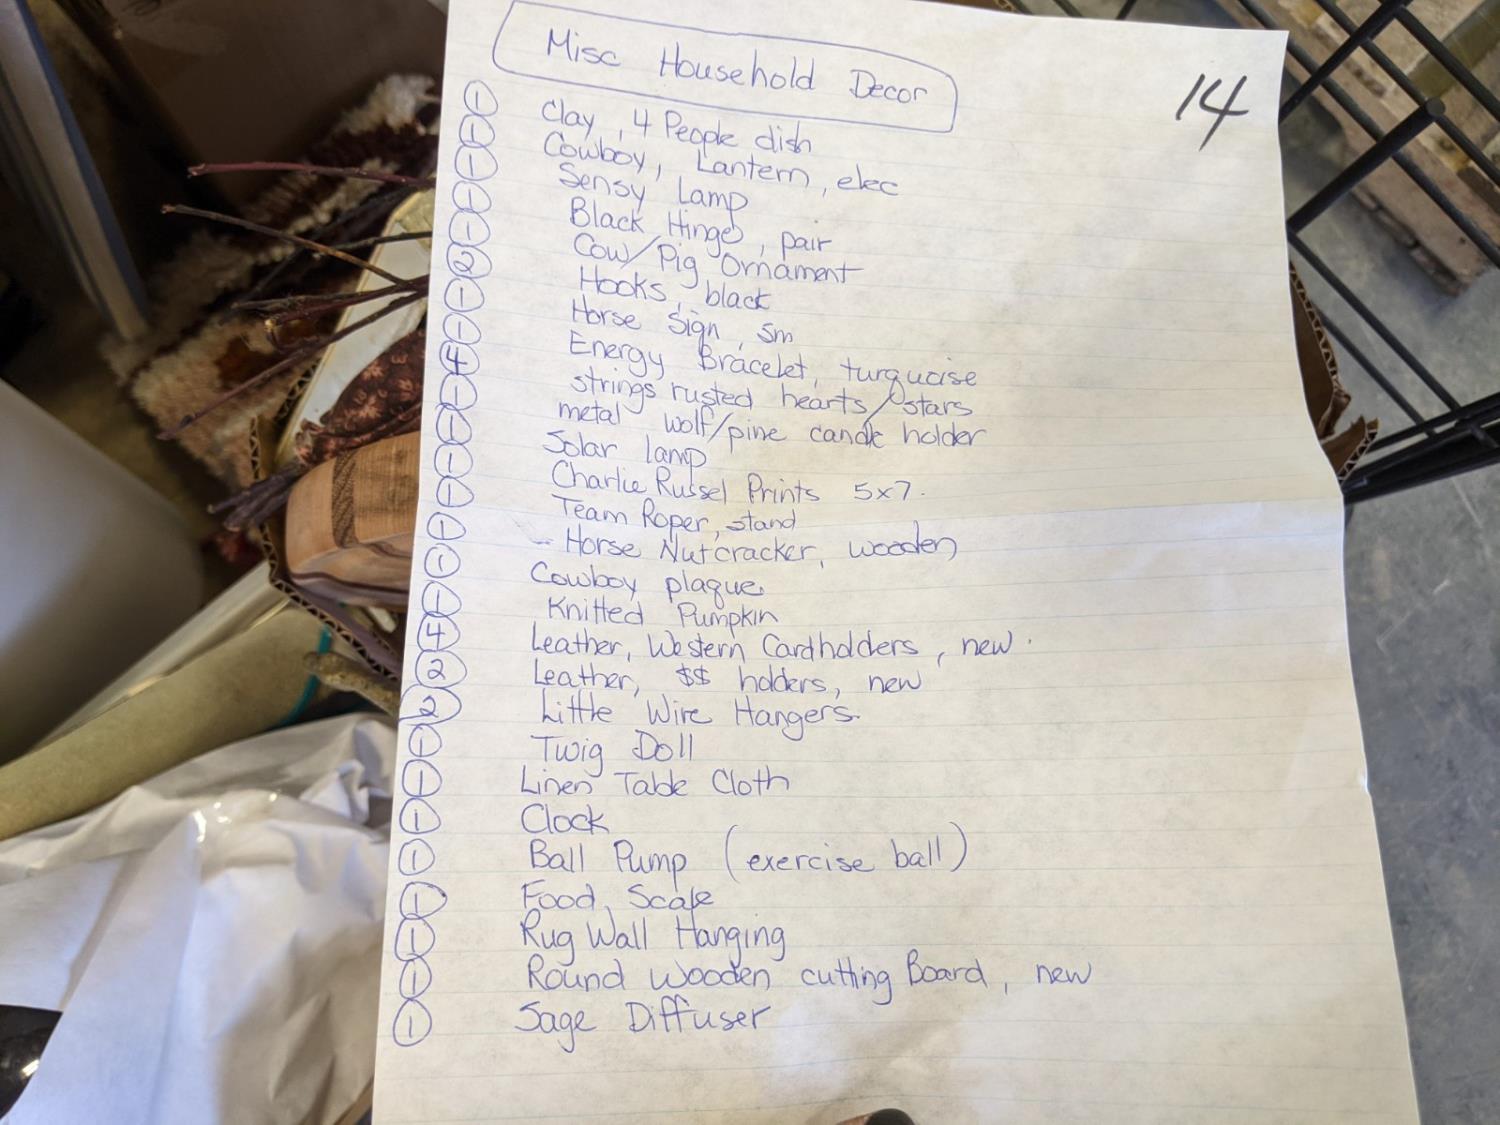 Misc Household Decor
14
1 Clay, 4 People dish
1 Cowboy, Lantern, elec
1 Sensy Lamp
1 Black Hinge, pair
1 Cow/Pig Ornament
2 Hooks, black
1 Horse Sign, sm
1 Energy Bracelet, turquoise
4 strings rusted hearts/stars
1 metal wolf/pine candle holder
1 Solar lamp
1 Charlie Russel Prints 5x7.
1 Team Roper, stand
1 - Horse Nutcracker, wooden
1 Cowboy plaque
1 Knitted Pumpkin
4 Leather, Western Cardholders, new
2 Leather, $$ holders, new
2 Little Wire Hangers
1 Twig Doll
1 Linen Table Cloth
1 Clock
1 Ball Pump (exercise ball)
1 Food, Scale
1 Rug Wall Hanging
1 Round Wooden cutting Board, new
1 Sage Diffuser